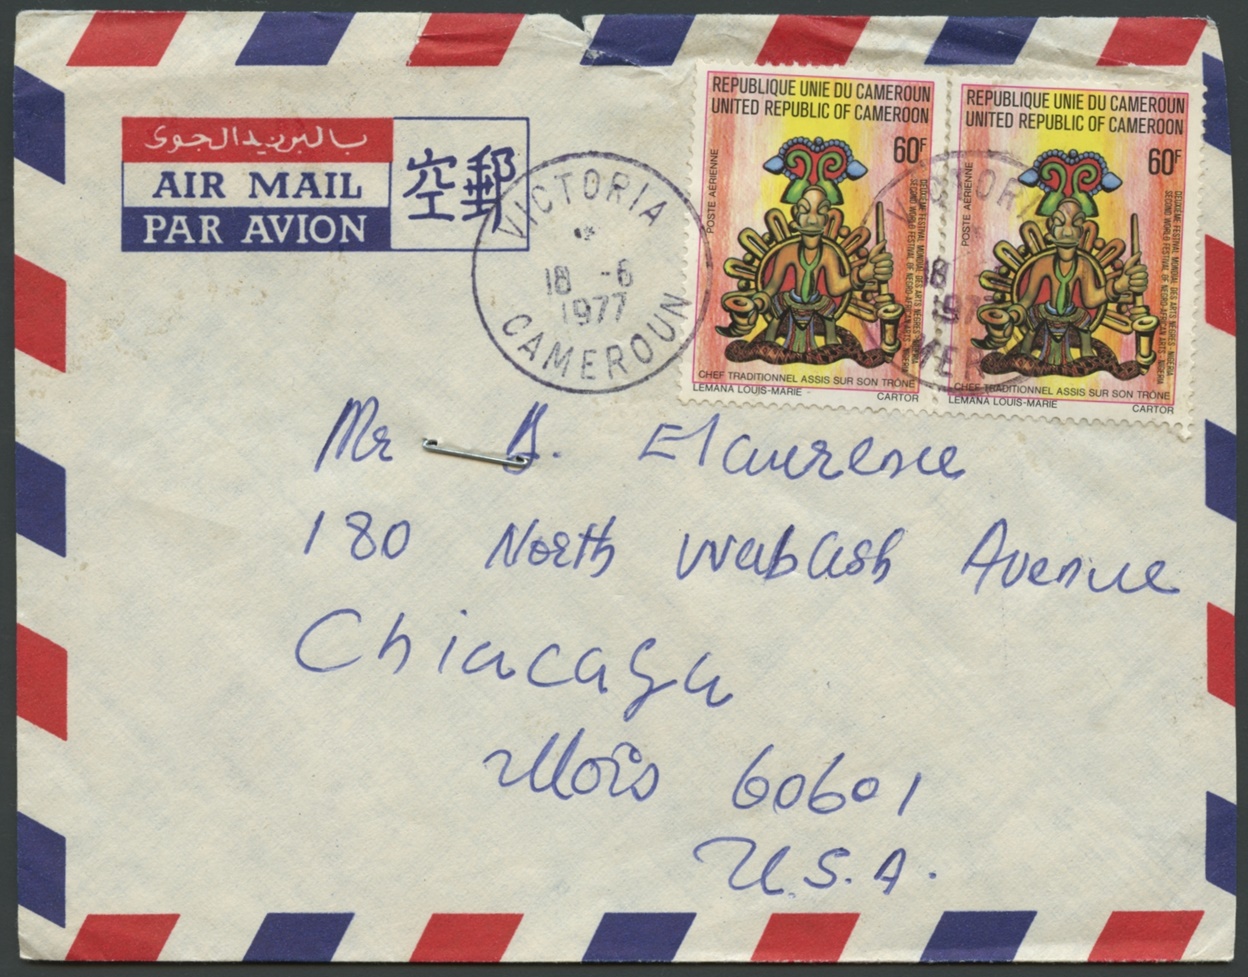 بالبريد الجوى
AIR MAIL
PAR AVION
空郵
VICTORIA
18 -6
1977
CAMEROUN
REPUBLIQUE UNIE DU CAMEROUN
UNITED REPUBLIC OF CAMEROON
60F
POSTE AÉRIENNE
DEUXIEME FESTIVAL MONDIAL DES ARTS NEGRES - NIGERIA
SECOND WORLD FESTIVAL OF NEGRO-AFRICAN ARTS - NIGERIA
CHEF TRADITIONNEL ASSIS SUR SON TRÔNE
LEMANA LOUIS-MARIE CARTOR
REPUBLIQUE UNIE DU CAMEROUN
UNITED REPUBLIC OF CAMEROON
60F
POSTE AÉRIENNE
DEUXIEME FESTIVAL MONDIAL DES ARTS NEGRES - NIGERIA
SECOND WORLD FESTIVAL OF NEGRO-AFRICAN ARTS - NIGERIA
CHEF TRADITIONNEL ASSIS SUR SON TRÔNE
LEMANA LOUIS-MARIE CARTOR
Mr
180 North Wabash Avenue
Chiacaga
Illois 60601
U.S.A.